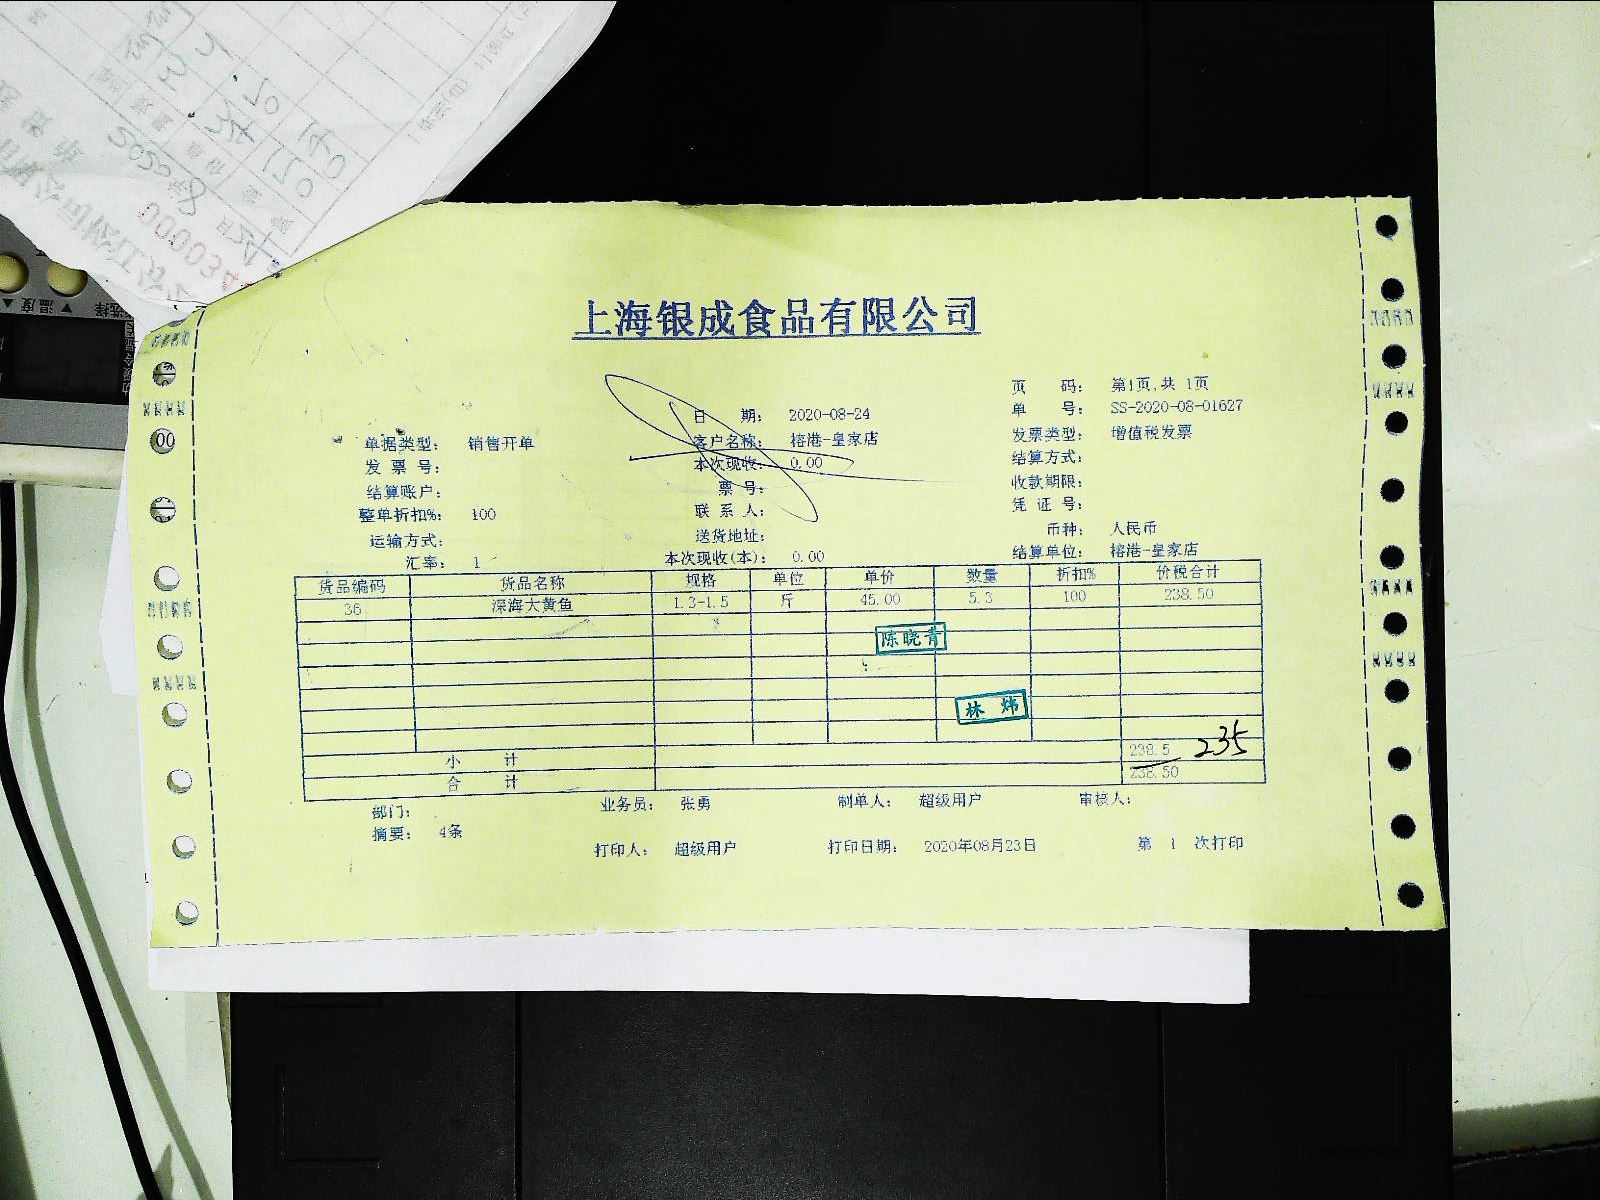 上海银成食品有限公司
页 码: 第1页,共 1页
日 期: 2020-08-24 单 号: SS-2020-08-01627
单据类型: 销售开单 客户名称: 榕港-皇家店 发票类型: 增值税发票
发 票 号: 本次现收: 0.00 结算方式:
结算账户: 票 号: 收款期限:
整单折扣%: 100 联 系 人: 凭 证 号:
运输方式: 送货地址: 币种: 人民币
汇率: 1 本次现收(本): 0.00 结算单位: 榕港-皇家店
货品编码 货品名称 规格 单位 单价 数量 折扣% 价税合计
36 深海大黄鱼 1.3-1.5 斤 45.00 5.3 100 238.50
陈晓青
林 炜
小 计 238.5 235
合 计 238.50
部门: 业务员: 张勇 制单人: 超级用户 审核人:
摘要: 4条
打印人: 超级用户 打印日期: 2020年08月23日 第 1 次打印